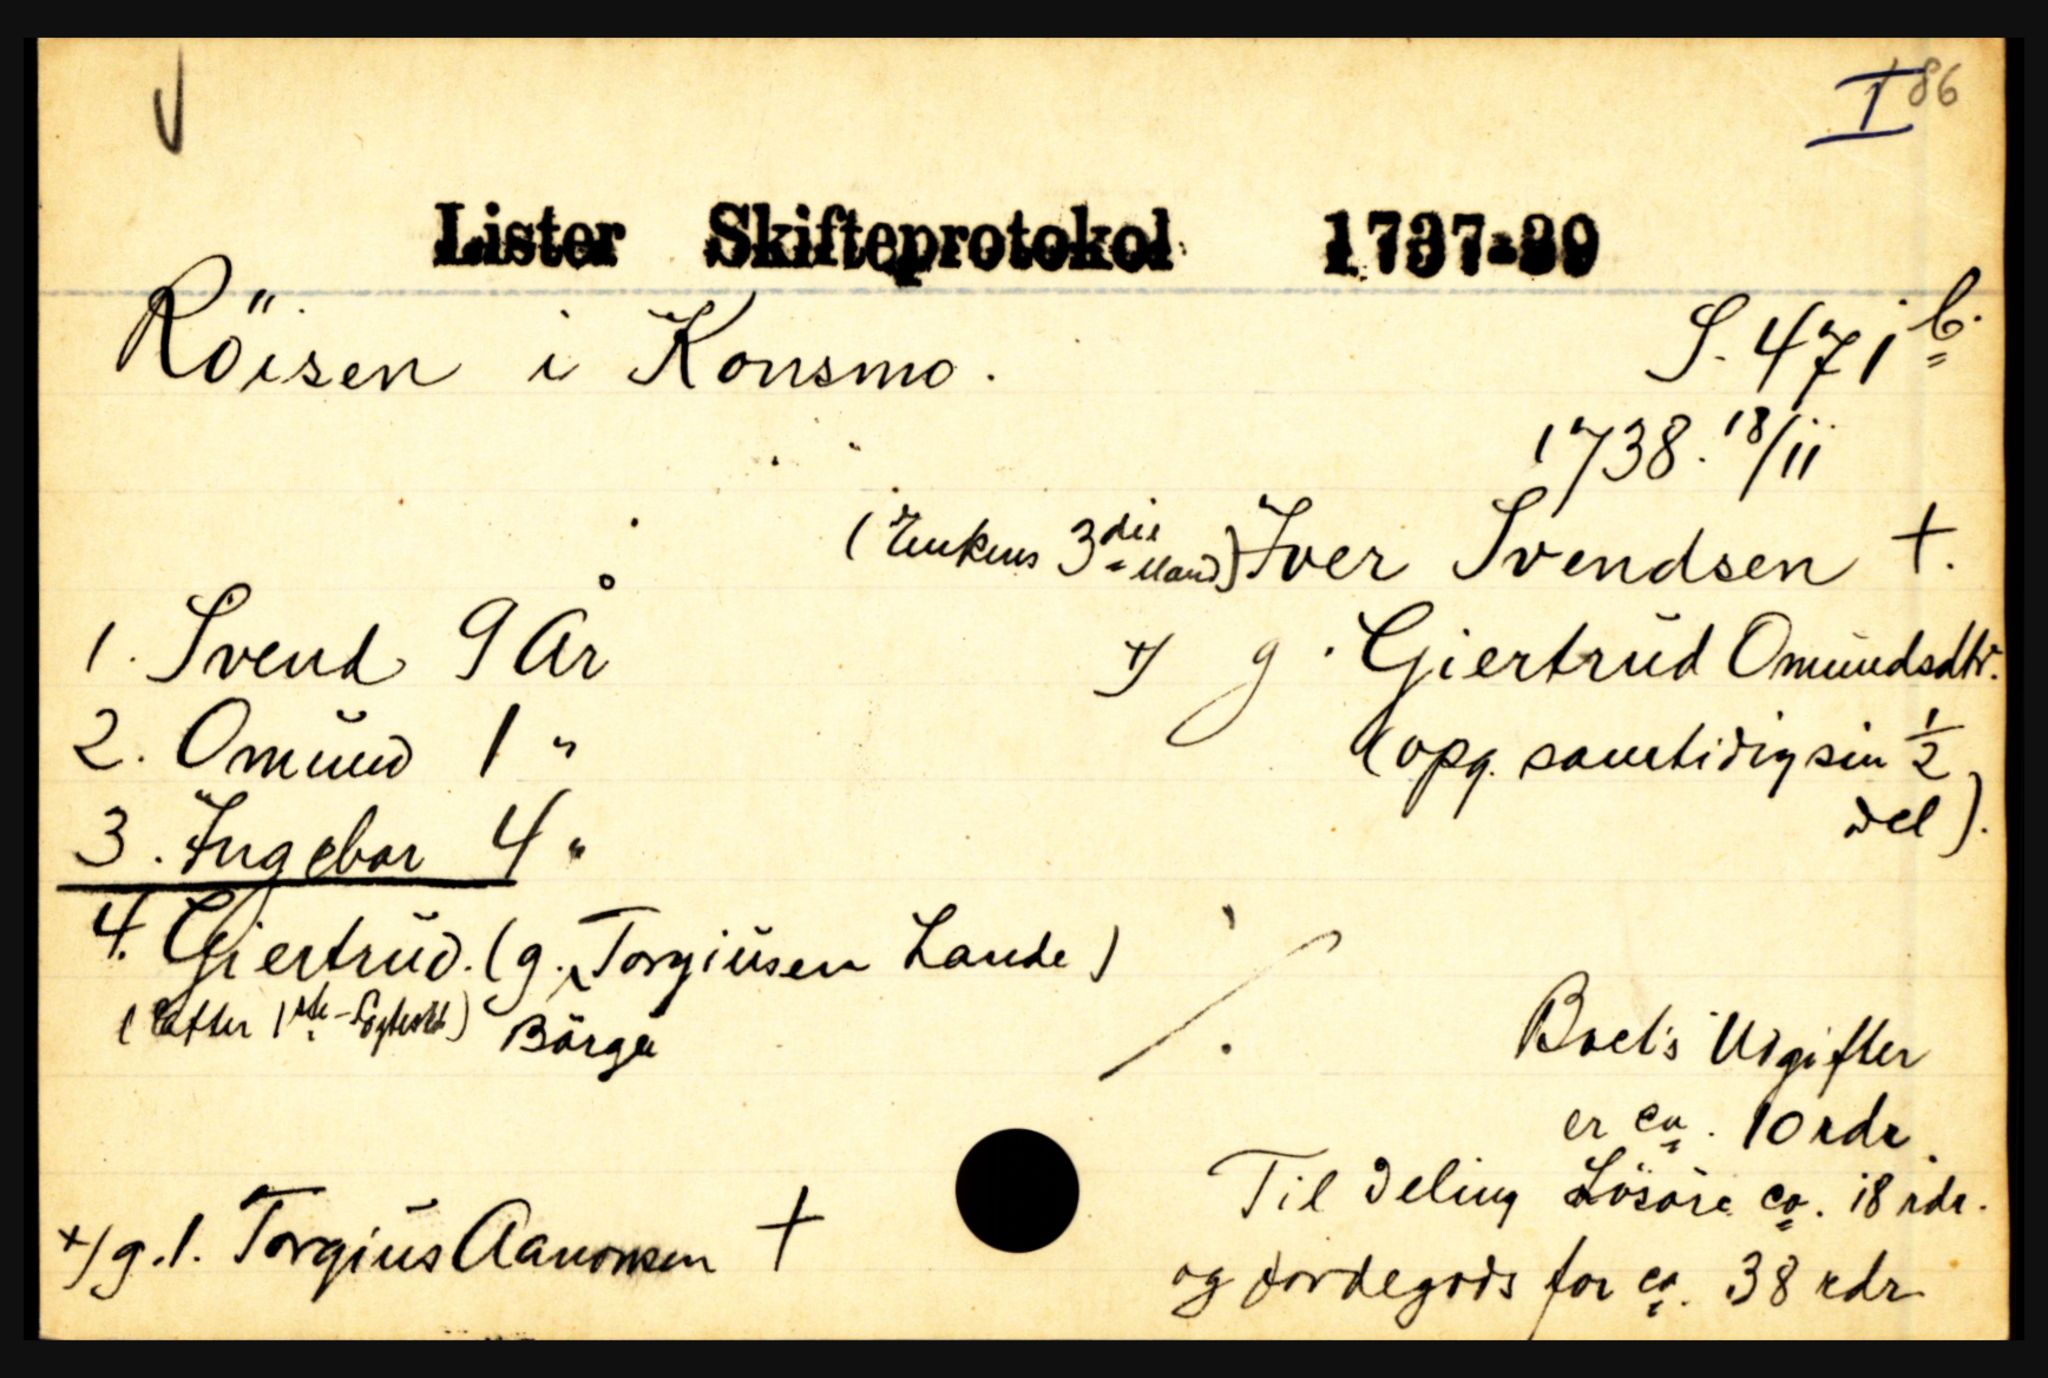 I 86
Lister Skifteprotokol 1737-39
Röisen i Konsmo. S. 471 b.
1738. 18/11
(Enkens 3die Mand) Iver Svendsen +.
1. Svend 9 År +/ g. Giertrŭd Omŭndsdtr.
2. Omŭnd 1 " (opg. samtidig sin 1/2
3. Ingebor 4 " del).
4. Giertrŭd. (g. Torgiŭsen Lande)
(efter 1ste Egteskb) Börge
Boets Udgifter
er ca. 10 rdr.
Til Deling Lösöre ca. 18 rdr.
+/ g. 1. Torgiŭs Aanonsen +
og Jordegods for ca. 38 rdr